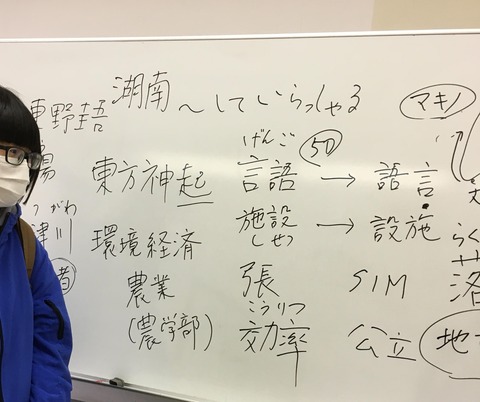 野圭吾
湖南 〜していらっしゃる
マキノ
東方神起
げんご
言語 50 → 語言
がわ
津川
施設 → 設施
しせつ
らく
環境経済
者
農業
張
SIM
(農学部)
こうりつ
効率
公立
地